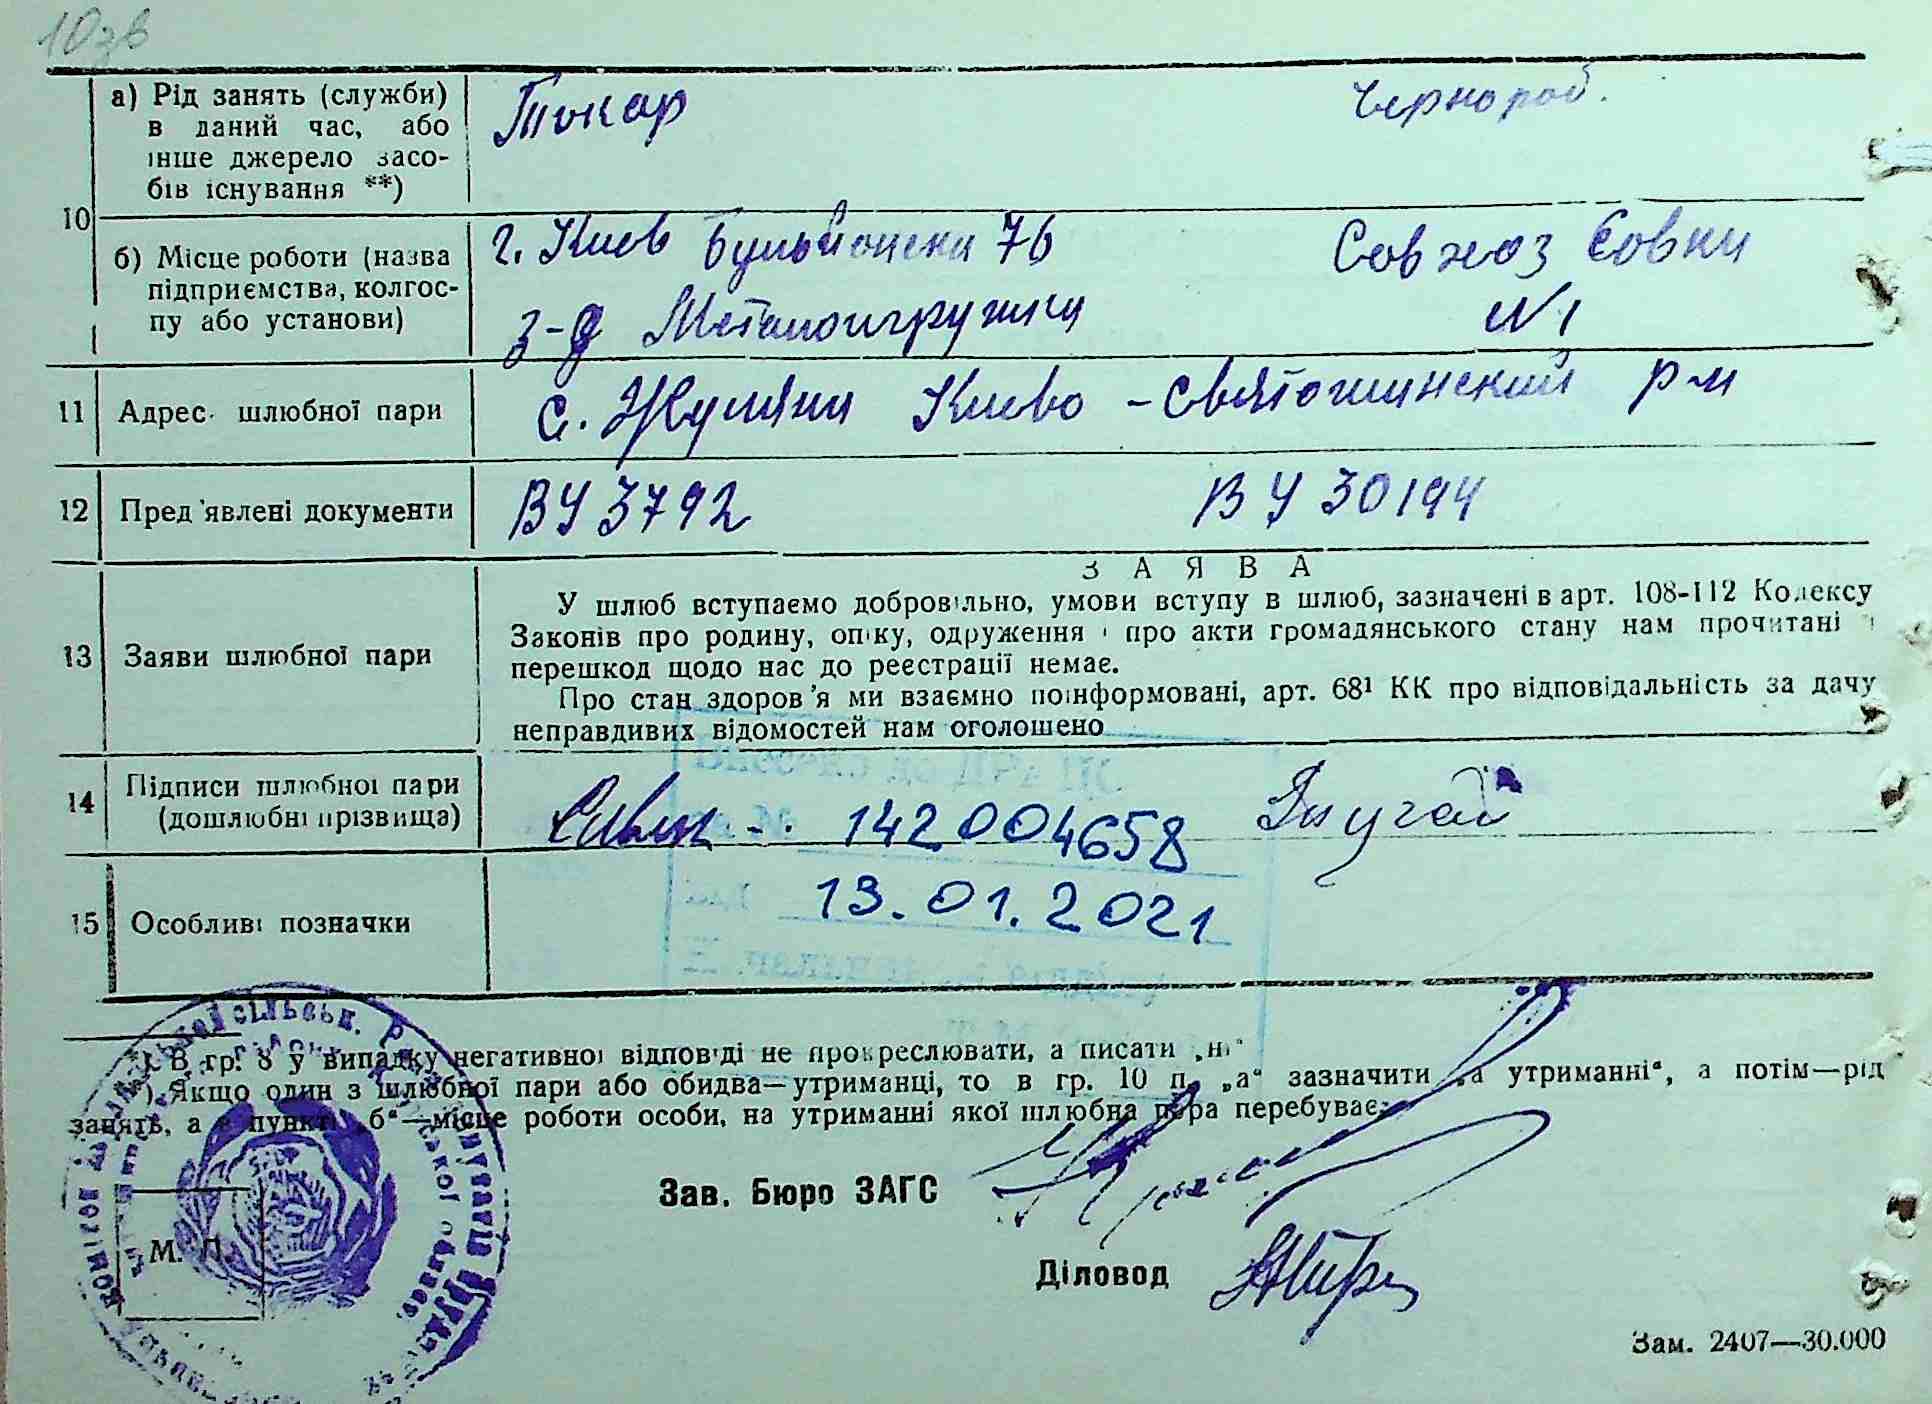 10зв
10
а) Рід занять (служби)
в даний час, або
інше джерело засо-
бів існування **)
Токар
Чернораб.
б) Місце роботи (назва
підприємства, колгос-
пу або установи)
г. Киев 76
Совхоз Совки
з-д Металоигрушки
N1
11 Адрес шлюбної пари
с. Жуляни Киево-Святошинский р-н
12 Пред'явлені документи
ВУ 3792
ВУ 30194
ЗАЯВА
13 Заяви шлюбної пари
У шлюб вступаємо добровільно, умови вступу в шлюб, зазначені в арт. 108-112 Кодексу
Законів про родину, опіку, одруження і про акти громадянського стану нам прочитані і
перешкод щодо нас до реєстрації немає.
Про стан здоров'я ми взаємно поінформовані, арт. 68¹ КК про відповідальність за дачу
неправдивих відомостей нам оголошено
14 Підписи шлюбної пари
(дошлюбні прізвища)
142004658
15 Особливі позначки
13.01.2021
В гр. 8 у випадку негативної відповіді не прокреслювати, а писати „ні“
Якщо один з шлюбної пари або обидва—утриманці, то в гр. 10 п. „а“ зазначити „на утриманні“, а потім—рід
занять, а в пункті „б“—місце роботи особи, на утриманні якої шлюбна пара перебуває.
Зав. Бюро ЗАГС
М. П.
Діловод
Зам. 2407—30.000